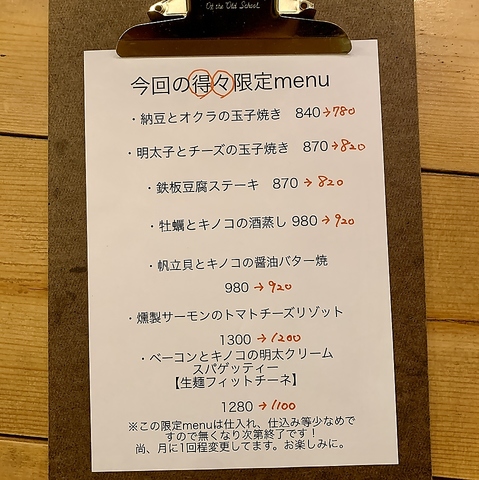 Of the Old School.
今回の得々限定menu
・納豆とオクラの玉子焼き 840→780
・明太子とチーズの玉子焼き 870→820
・鉄板豆腐ステーキ 870→820
・牡蠣とキノコの酒蒸し 980→920
・帆立貝とキノコの醤油バター焼
980→920
・燻製サーモンのトマトチーズリゾット
1300→1200
・ベーコンとキノコの明太クリーム
スパゲッティー
【生麺フィットチーネ】
1280→1100
※この限定menuは仕入れ、仕込み等少なめで
すので無くなり次第終了です！
尚、月に1回程変更してます。お楽しみに。